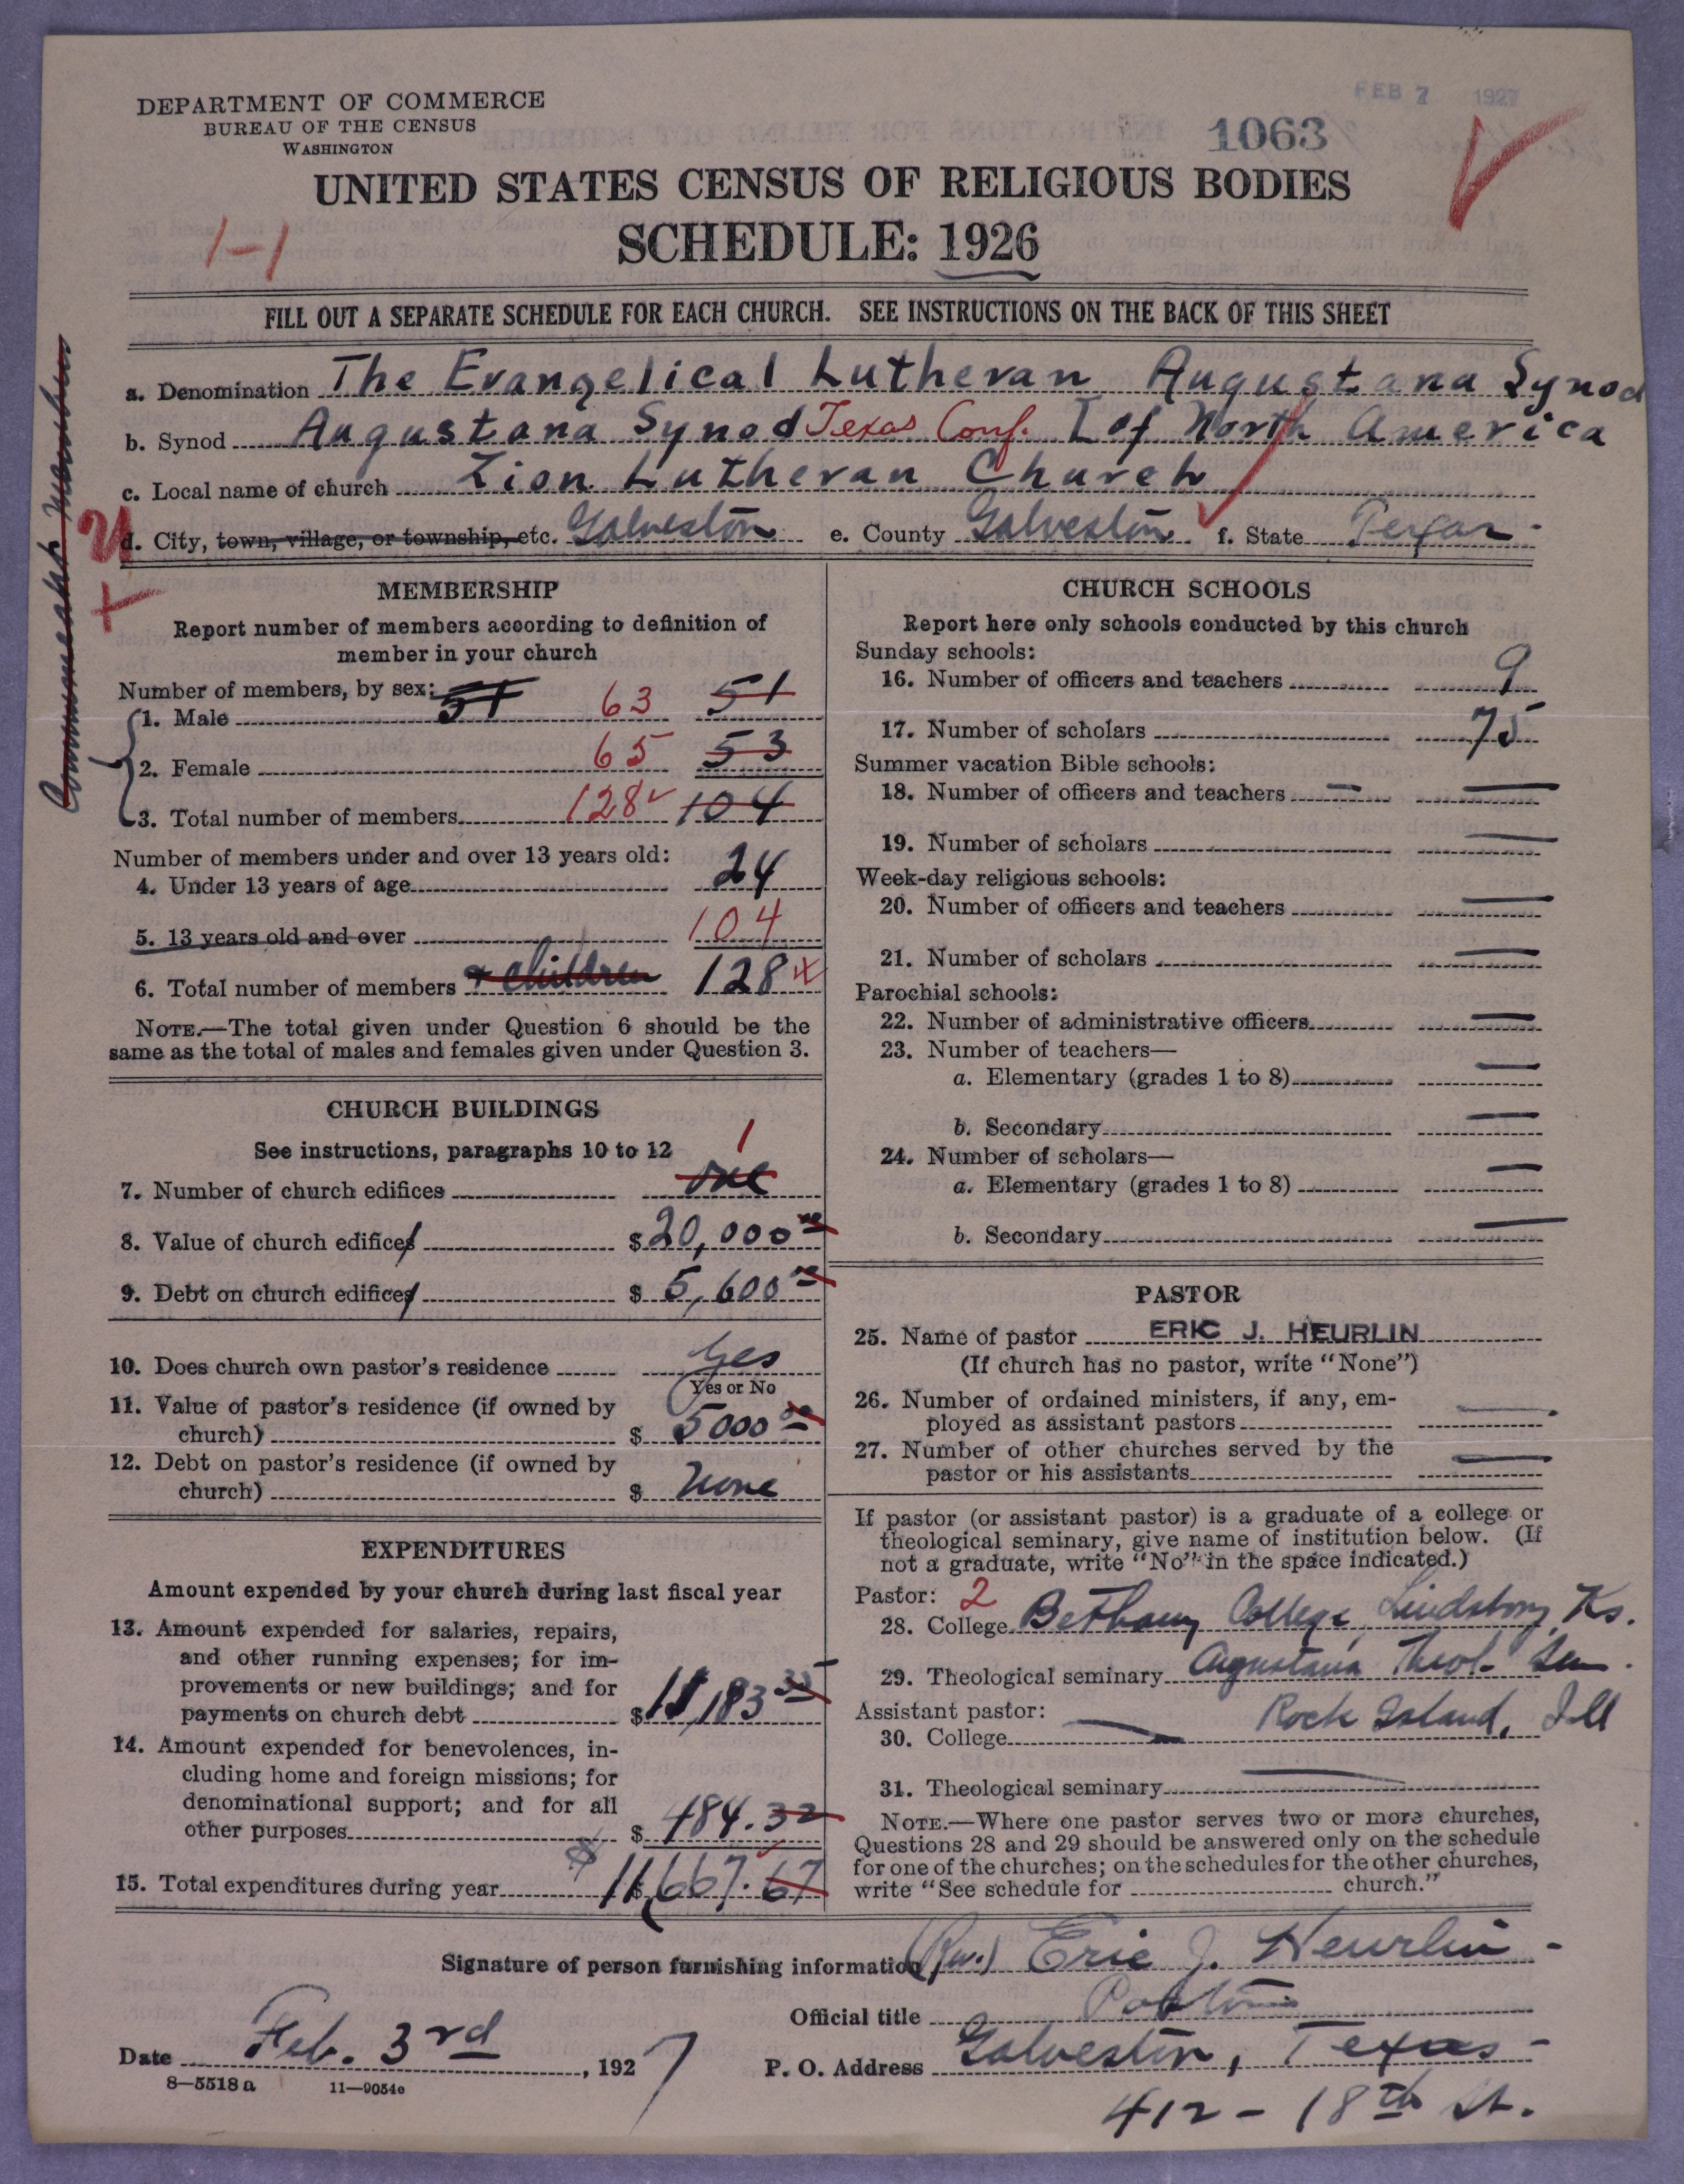 FEB 7 1927
DEPARTMENT OF COMMERCE
BUREAU OF THE CENSUS
WASHINGTON
1063
UNITED STATES CENSUS OF RELIGIOUS BODIES
SCHEDULE: 1926
1-1
FILL OUT A SEPARATE SCHEDULE FOR EACH CHURCH. SEE INSTRUCTIONS ON THE BACK OF THIS SHEET
a. Denomination The Evangelical Lutheran Augustana Synod
b. Synod Augustana Synod Texas Conf. of North America
c. Local name of church Zion Lutheran Church
d. City, town, village, or township, etc. Galveston e. County Galveston f. State Texas
Communicant Members
MEMBERSHIP
Report number of members according to definition of
member in your church
Number of members, by sex: 51
1. Male 63 51
2. Female 65 53
3. Total number of members 128 104
Number of members under and over 13 years old:
4. Under 13 years of age 24
5. 13 years old and over 104
6. Total number of members + children 128
NOTE.—The total given under Question 6 should be the
same as the total of males and females given under Question 3.
CHURCH BUILDINGS
See instructions, paragraphs 10 to 12
1
7. Number of church edifices one
8. Value of church edifices $ 20,000 00
9. Debt on church edifices $ 5,600 00
10. Does church own pastor's residence Yes
Yes or No
11. Value of pastor's residence (if owned by
church) $ 5000 00
12. Debt on pastor's residence (if owned by
church) $ None
EXPENDITURES
Amount expended by your church during last fiscal year
13. Amount expended for salaries, repairs,
and other running expenses; for im-
provements or new buildings; and for
payments on church debt $ 11,183 35
14. Amount expended for benevolences, in-
cluding home and foreign missions; for
denominational support; and for all
other purposes $ 484.32
15. Total expenditures during year $ 11,667.67
CHURCH SCHOOLS
Report here only schools conducted by this church
Sunday schools:
16. Number of officers and teachers 9
17. Number of scholars 75
Summer vacation Bible schools:
18. Number of officers and teachers — —
19. Number of scholars —
Week-day religious schools:
20. Number of officers and teachers —
21. Number of scholars —
Parochial schools:
22. Number of administrative officers —
23. Number of teachers—
a. Elementary (grades 1 to 8) —
b. Secondary —
24. Number of scholars—
a. Elementary (grades 1 to 8) —
b. Secondary —
PASTOR
25. Name of pastor ERIC J. HEURLIN
(If church has no pastor, write "None")
26. Number of ordained ministers, if any, em-
ployed as assistant pastors —
27. Number of other churches served by the
pastor or his assistants —
If pastor (or assistant pastor) is a graduate of a college or
theological seminary, give name of institution below. (If
not a graduate, write "No" in the space indicated.)
Pastor: 2
28. College Bethany College, Lindsborg, Ks.
29. Theological seminary Augustana Theol. Sem.
Assistant pastor: Rock Island, Ill
30. College —
31. Theological seminary —
NOTE.—Where one pastor serves two or more churches,
Questions 28 and 29 should be answered only on the schedule
for one of the churches; on the schedules for the other churches,
write "See schedule for church."
Signature of person furnishing information (Rev.) Eric J. Heurlin
Official title Pastor
Date Feb. 3rd, 1927
P. O. Address Galveston, Texas
8—5518 a 11—9054c
412 - 18th St.